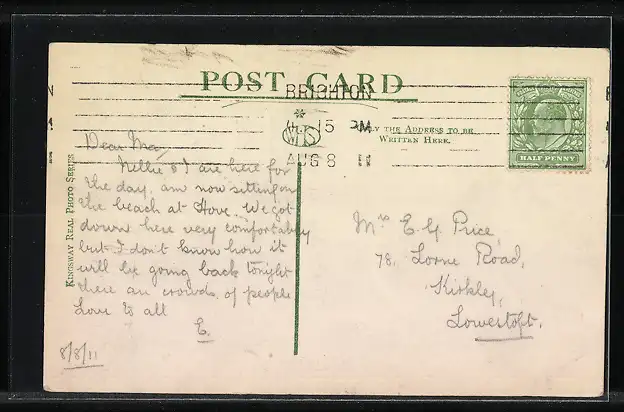 POST CARD
BRIGHTON
15 PM
AUG 8 11
ONLY THE ADDRESS TO BE
WRITTEN HERE.
HALF PENNY
KINGSWAY REAL PHOTO SERIES
Dear Ma,
Nellie & I are here for
the day, am now sitting on
the beach at Hove. We got
down here very comfortably
but I don't know how it
will be going back tonight
there are crowds of people
Love to all
E.
8/8/11
Mrs E. G. Price
78, Lorne Road,
Kirkley,
Lowestoft.